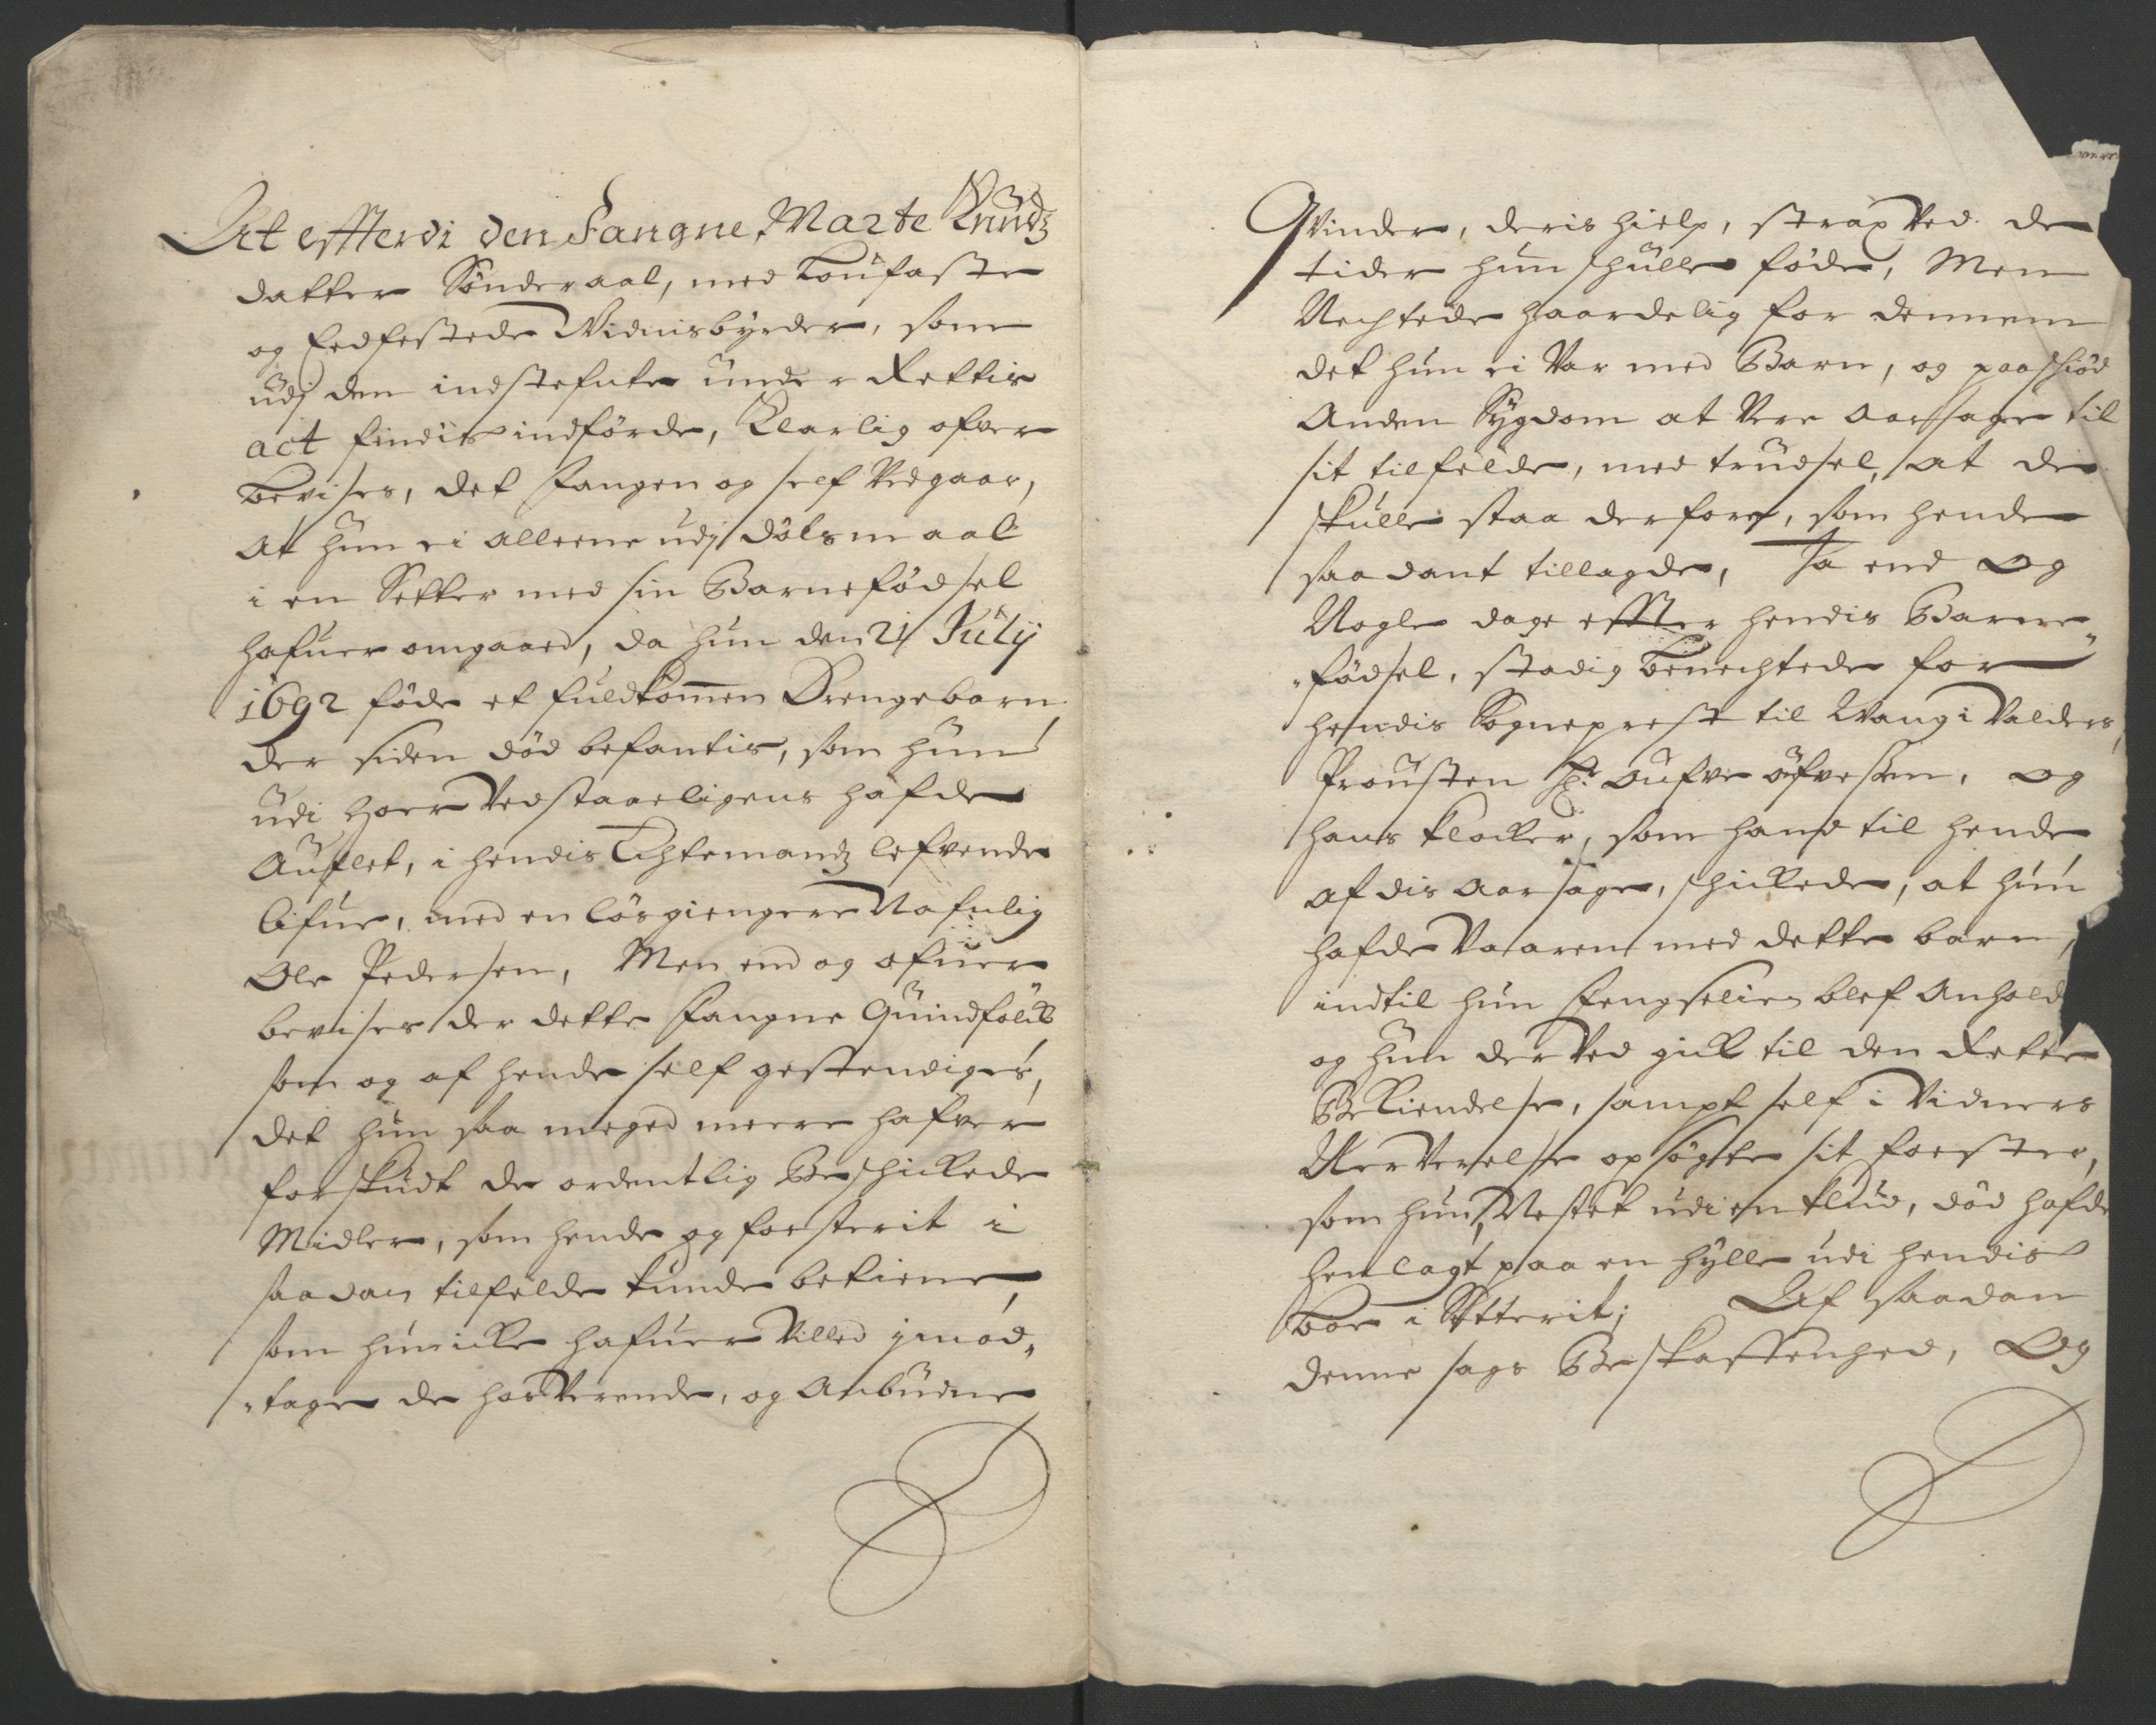 At effterdi den Fangne Marte Knudz
datter Sønderaal, med Loufaste
og Eedfestede Vidnisbyrder, som
udj den indstefnte under Rettis
act findis indførde, Klarlig ofver
bevises, det Fangen og self Vedgaar,
at hun ei alleene udj dølsmaal
i en Setter med sin Barnefødsel
hafuer omgaaed, da hun den 21 Julij
1692 føde et fuldkommen Drengebarn
der siden død befantis, som hun
udi Hoer Vedstaaeligens hafde
Auflet, i hendis Echtemandz lefvende
lifue, med en løsgiengere Nafnlig
Ole Pedersen, Men end og ofuer
bevises der dette Fangne Quindfolck
som og af hende self gestendiges,
det hun saa meged meere hafver
forskudt de ordentlig Beschickede
Midler, som hende og fosterit i
saadan tilfelde kunde betiene,
som hun icke hafuer Villed jmod„
„tage de hosVerende, og Anbudne
Qvinder, deris hielp, strax Ved de
tider hun schulle føde, Men
Nechtede haardelig for dennem
det hun ei Var med Barn, og paaschiød
Anden Sygdom at Vere Aarsage til
sit tilfelde, med trudsel, at de
skulle staa derfore, som hende
saadant tillagde, Ja end og
Nogle dage effter hendis Barne„
„fødsel, stadig benechtede for
hendis Sogneprest til Wang i Valders,
Prousten Hr. Oufve Ofvessen, og
hans klocker, som hand til hende
af dis Aarsage, schickede, at hun
hafde Vaaren med dette barn,
indtil hun Fengselien blef Anhold
og hun derVed gick til den Rette
Bekiendelse, sampt self i Vidners
NerVerelse opsøgte sit foester,
som hun, Nestet udi en klud, død hafde
henlagt paa en hylle udi hendis
boe i Setterit; Af saadan
denne sags Beskaffenhed, Og